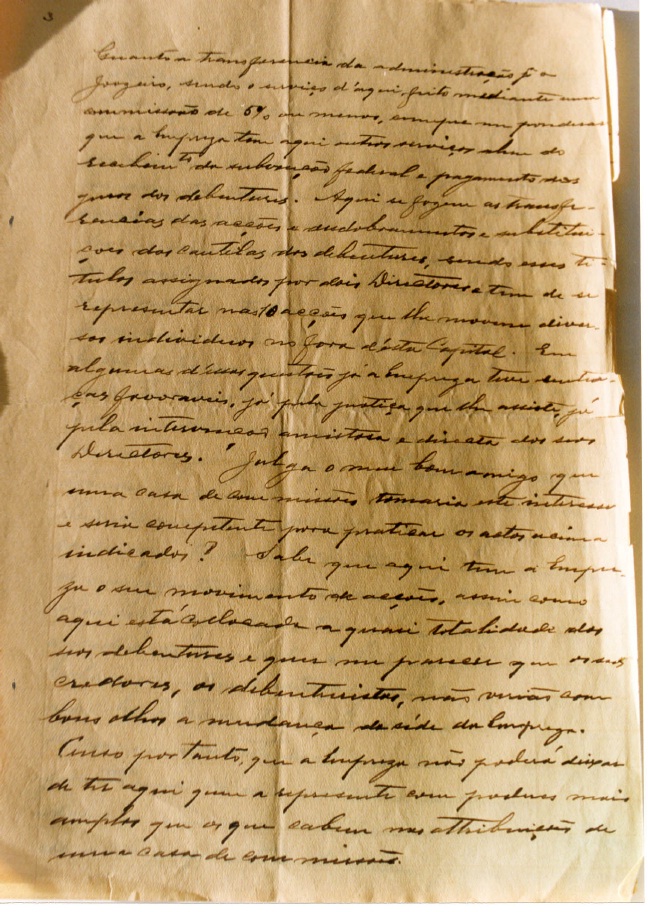 3
Quanto a transferencia da administração pª a
Joazeiro, sendo o serviço d'aqui feito mediante uma
commissão de 5% ou menos, cumpre me ponderar
que a Empreza tem aqui outros serviços alem do
recebimto da subvenção federal e pagamento dos
juros dos debentures. Aqui se fazem as transfe-
rencias das acções e sudobramentos e substitui-
ções das cautelas dos debentures, sendo esses ti-
tulos assignados por dois Directores e tem de se
representar nas 10 acções que lhe movem diver-
sos individuos no fôro d'esta Capital. Em
algumas d'essas questões já a Empreza teve senten-
ças favoraveis, já pela justiça que lhe assiste, já
pela intervenção amistosa e directa dos seus
Directores. Julga o meu bom amigo que
uma casa de commissões tomaria este interesse
e seria competente para praticar os actos acima
indicados? Sabe que aqui tem a Empre-
za o seu movimento de acções, assim como
aqui está collocada a quasi totalidade dos
seos debentures e quer me parecer que os seos
credores, os debenturistas, não verião com
bons olhos a mudança da séde da Empreza.
Penso por tanto, que a Empreza não poderá deixar
de ter aqui quem a represente com poderes mais
amplos que os que cabem nas attribuições de
uma casa de commissões.